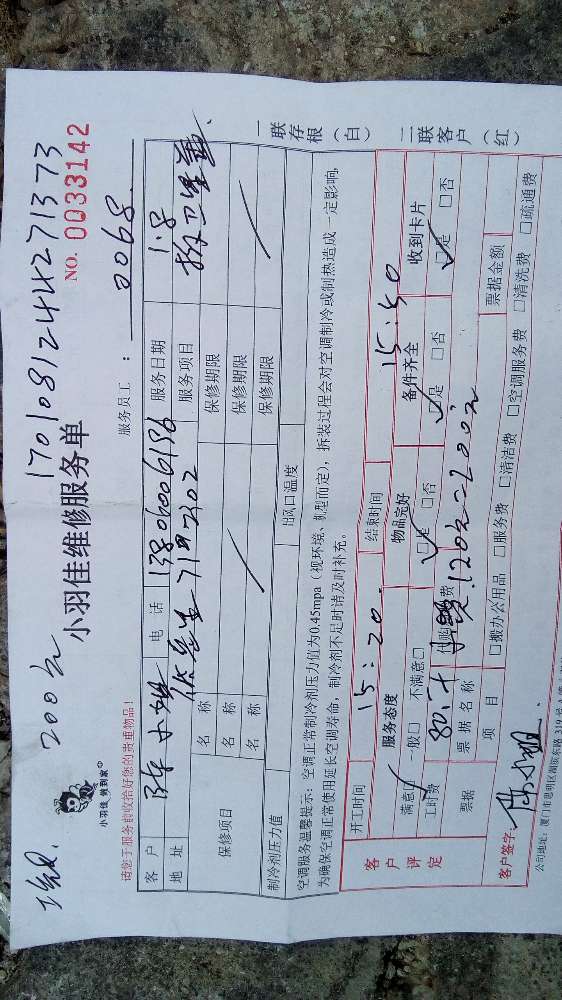 200元 1701081244271373
小羽佳 做到家
小羽佳维修服务单 NO. 0033142
请您于服务前收拾好您的贵重物品! 服务员工: 0068
客户 陈小姐 电话 13806006136 服务日期 1.8
地址 服务项目
保修项目 名称 保修期限
名称 保修期限
名称 保修期限
制冷剂压力值 出风口温度
空调服务温馨提示: 空调正常制冷剂压力值为0.45mpa (视环境、机型而定), 拆装过程会对空调制冷或制热造成一定影响,
为确保空调正常使用延长空调寿命, 制冷剂不足时请及时补充。
客户评定 开工时间 15:20 结束时间 15:50
服务态度 物品完好 备件齐全 收到卡片
满意 一般□ 不满意□ □是 □否 □是 □否 □是 □否
工时费 80 代购费 120元=200元
票据 票据名称 票据金额
项目 □搬办公用品 □服务费 □清洁费 □空调服务费 □清洗费 □疏通费
客户签字: 陈小姐
公司地址: 厦门市思明区湖滨东路319号
一联存根(白) 二联客户(红)